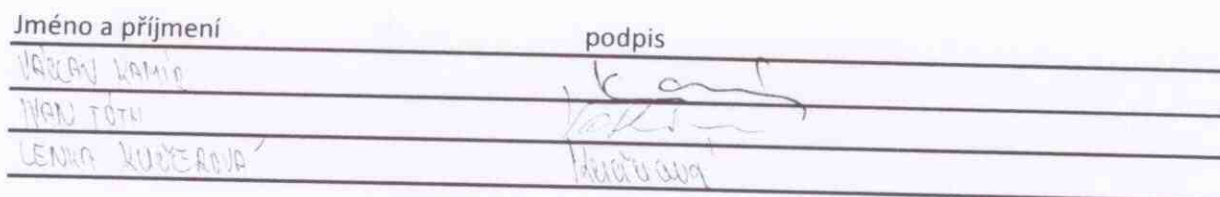 Jméno a příjmení podpis
VÁCLAV KAMIR
IVAN TÓTH
LENKA KUČEROVÁ Kučerová